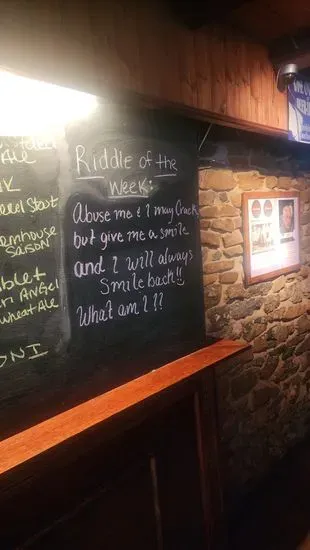 Ale
Stout
Farmhouse
SAISON
Angel
Wheat Ale
Riddle of the
Week:
Abuse me & I may Crack
but give me a smile
and I will always
Smile back!!
What am I??